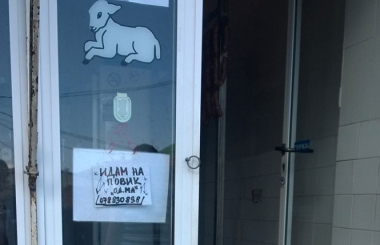 "ИДАМ НА
ПОВИК
"ОД.МА"
078830838